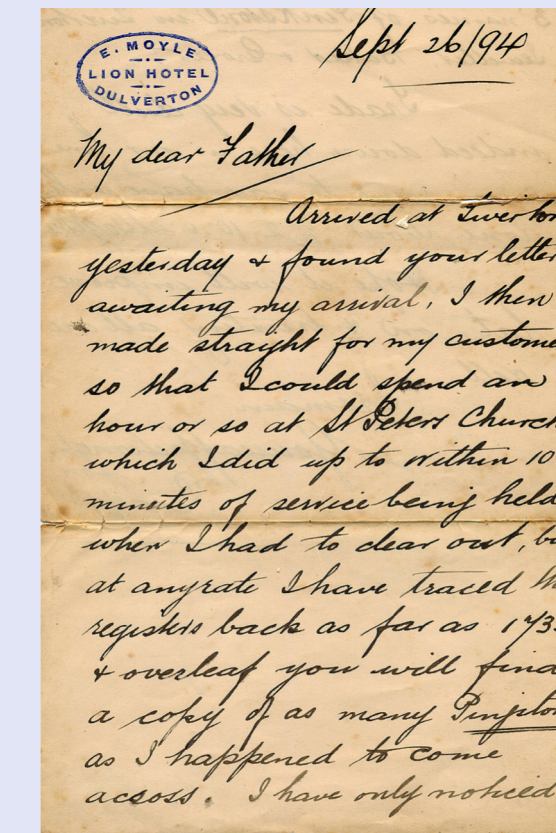 E. MOYLE
LION HOTEL
DULVERTON
Sept 26/94
My dear Father
Arrived at Tiverton
yesterday & found your letter
awaiting my arrival, I then
made straight for my custome
so that I could spend an
hour or so at St Peters Church
which I did up to within 10
minutes of service being held
when I had to clear out, bu
at anyrate I have traced th
registers back as far as 173
& overleaf you will find
a copy of as many Pinglto
as I happened to come
acsoss. I have only noticed